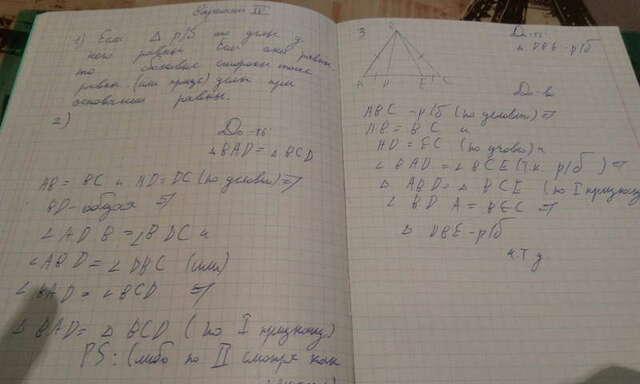 Вариант IV
1) Если Δ р/б то углы у
него равны. Если они равны
то боковые стороны тоже
равны. (или проще) углы при
основании равны.
2)
До-ть
Δ BAD = Δ BCD
AB = BC и AD = DC (по условию) ⇒
BD - общая ⇒
∠ A D B = ∠ B D C и
∠ A B D = ∠ D B C (или)
∠ B A D = ∠ B C D ⇒
Δ BAD = Δ BCD (по I признаку)
PS: (либо по II смотря как
3
B
A D E C
До-ть
Δ DBE - р/б
До-во
A B C - р/б (по условию) ⇒
AB = B C и
AD = EC (по условию) и
∠ BAD = ∠ B C E (т.к. р/б) ⇒
Δ ABD = Δ B C E (по I признаку
∠ BD A = B E C ⇒
Δ DBE - р/б
ч.т.д.